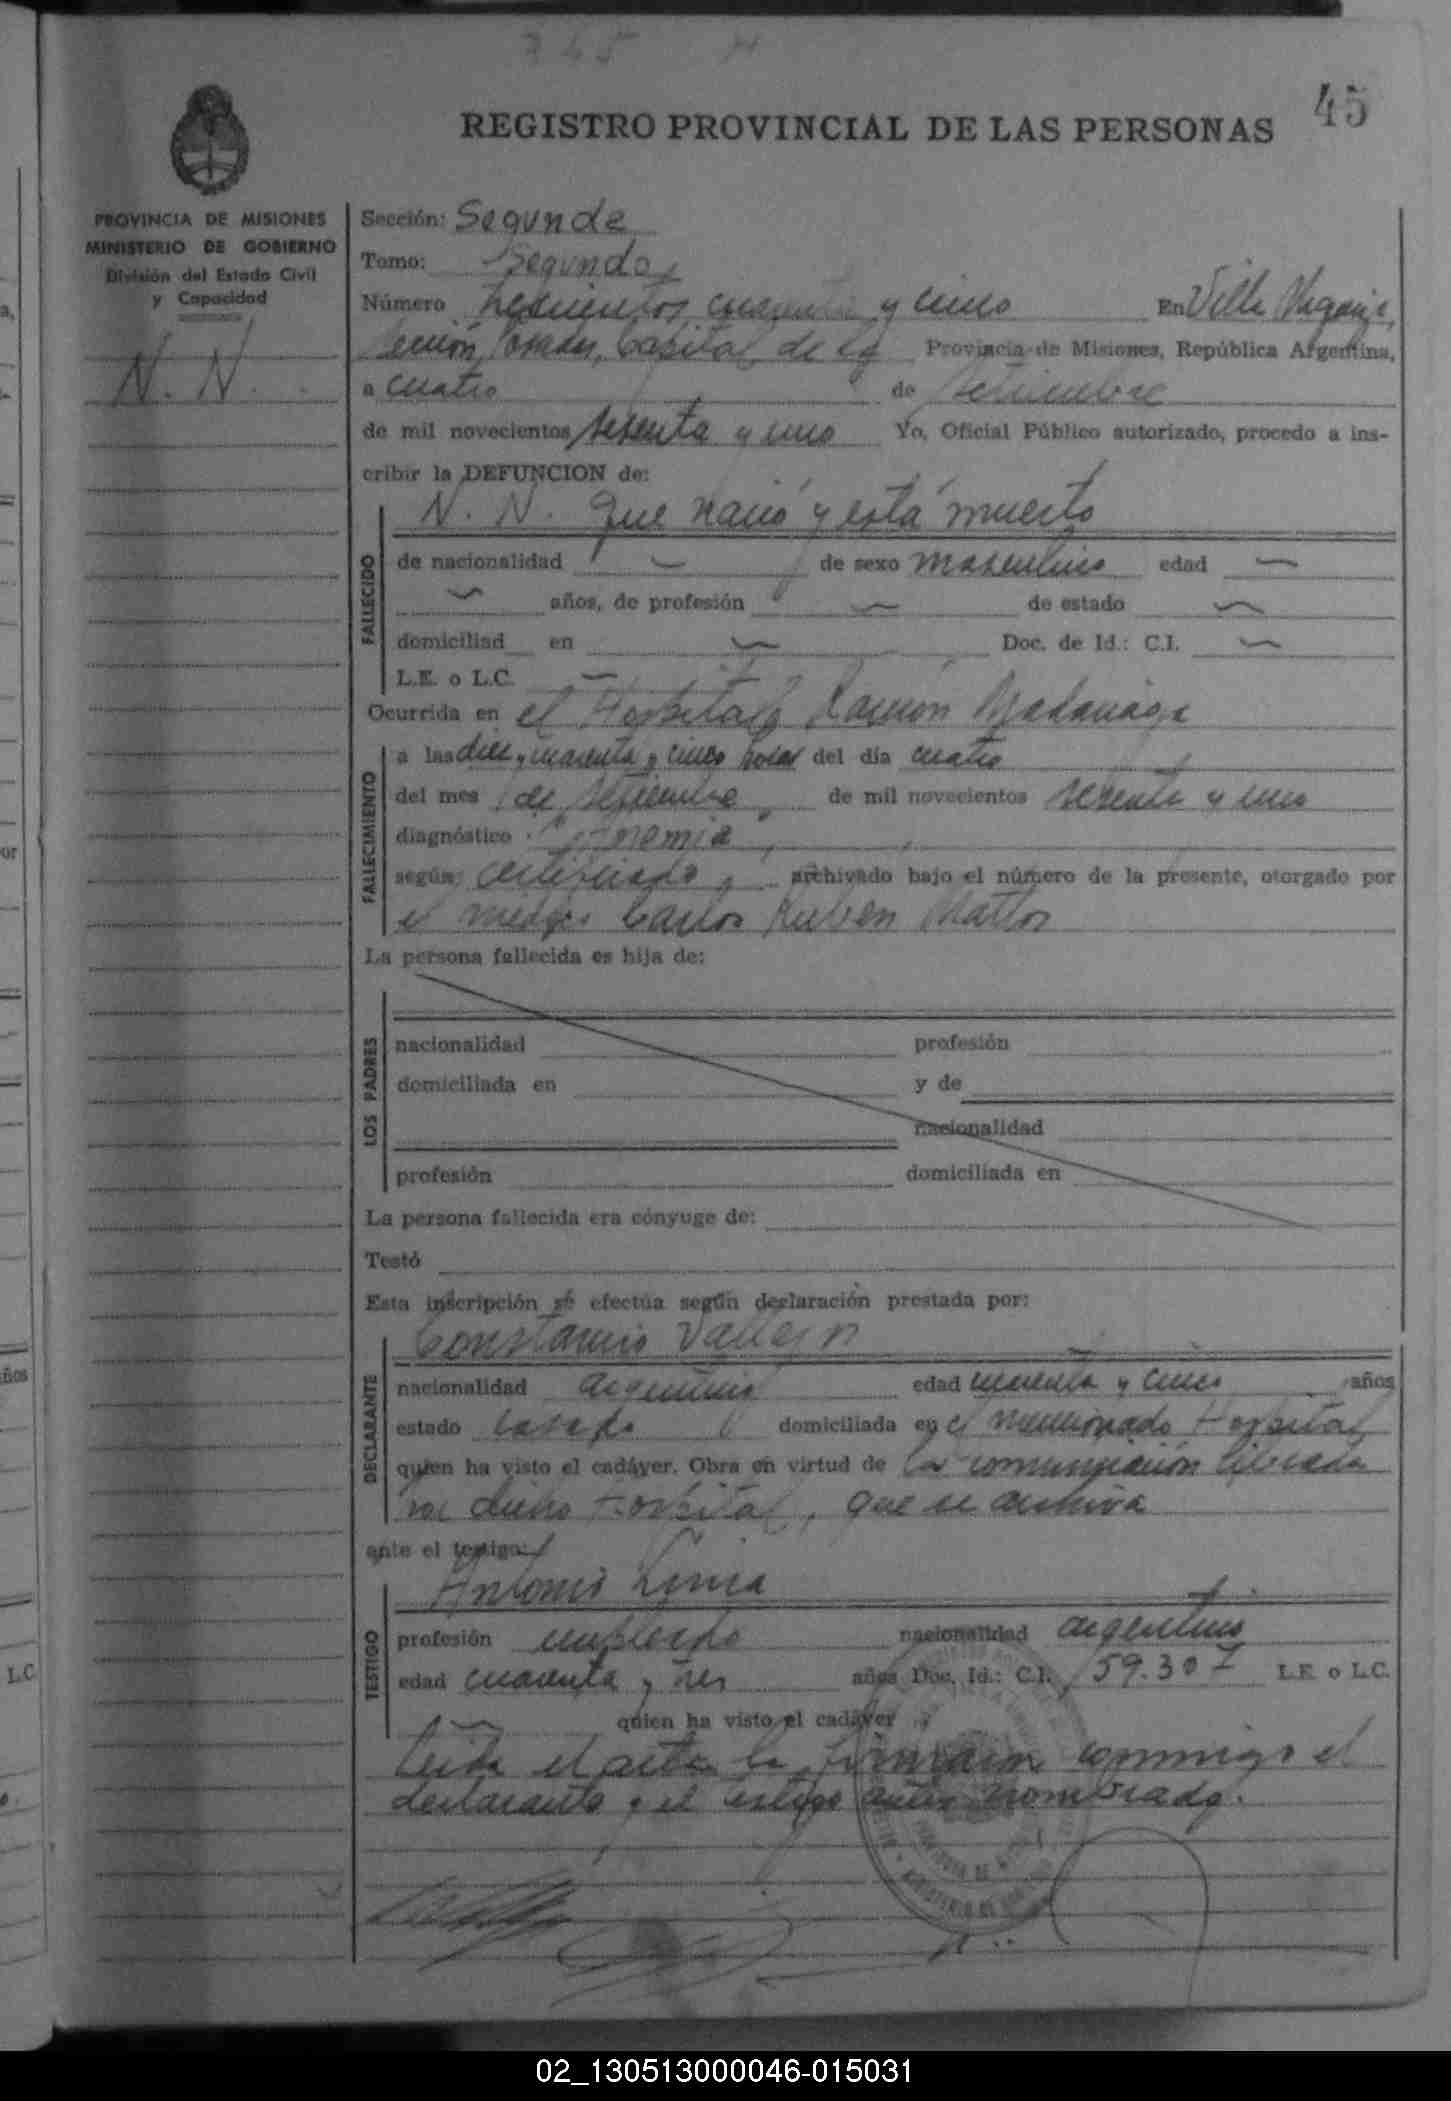 345
45
REGISTRO PROVINCIAL DE LAS PERSONAS
PROVINCIA DE MISIONES
MINISTERIO DE GOBIERNO
División del Estado Civil
y Capacidad
N. N.
Sección: Segunda
Tomo: Segundo
Número trescientos cuarenta y cinco En Villa
Capital de la Provincia de Misiones, República Argentina,
a cuatro de setiembre
de mil novecientos sesenta y uno Yo, Oficial Público autorizado, procedo a ins-
cribir la DEFUNCION de:
N. N. que nació y está muerto
FALLECIDO
de nacionalidad — de sexo masculino edad —
— años, de profesión — de estado —
domiciliad en — Doc. de Id.: C.I. —
L.E. o L.C. —
Ocurrida en el Hospital Ramón Madariaga
FALLECIMIENTO
a las diez y cuarenta y cinco horas del día cuatro
del mes de setiembre de mil novecientos sesenta y uno
diagnóstico
según certificado archivado bajo el número de la presente, otorgado por
el médico Carlos Ruben Mattos
La persona fallecida es hija de:
LOS PADRES
nacionalidad profesión
domiciliada en y de
nacionalidad
profesión domiciliada en
La persona fallecida era cónyuge de:
Testó
Esta inscripción se efectúa según declaración prestada por:
Constancio
DECLARANTE
nacionalidad argentino edad cuarenta y cinco años
estado casado domiciliada en el mencionado Hospital
quien ha visto el cadáver. Obra en virtud de la comunicación librada
por dicho Hospital, que se archiva
ante el testigo:
Antonio
TESTIGO
profesión empleado nacionalidad argentino
edad cuarenta y tres años Doc. Id.: C.I. 59.307 L.E. o L.C.
— quien ha visto el cadáver
Leída el acta la firmaron conmigo el
declarante y el testigo antes nombrado.
02_130513000046-015031